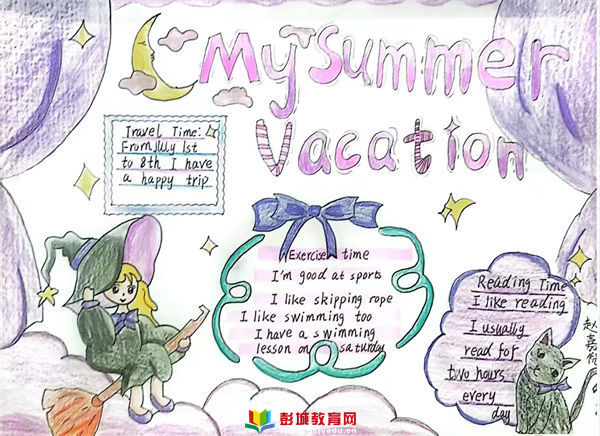 My Summer
Vacation
Travel Time:
From July 1st
to 8th I have
a happy trip
Exercise time
I'm good at sports
I like skipping rope
I like swimming too
I have a swimming
lesson on saturday
Reading Time
I like reading
I usually
read for
two hours
every
day
彭城教育网